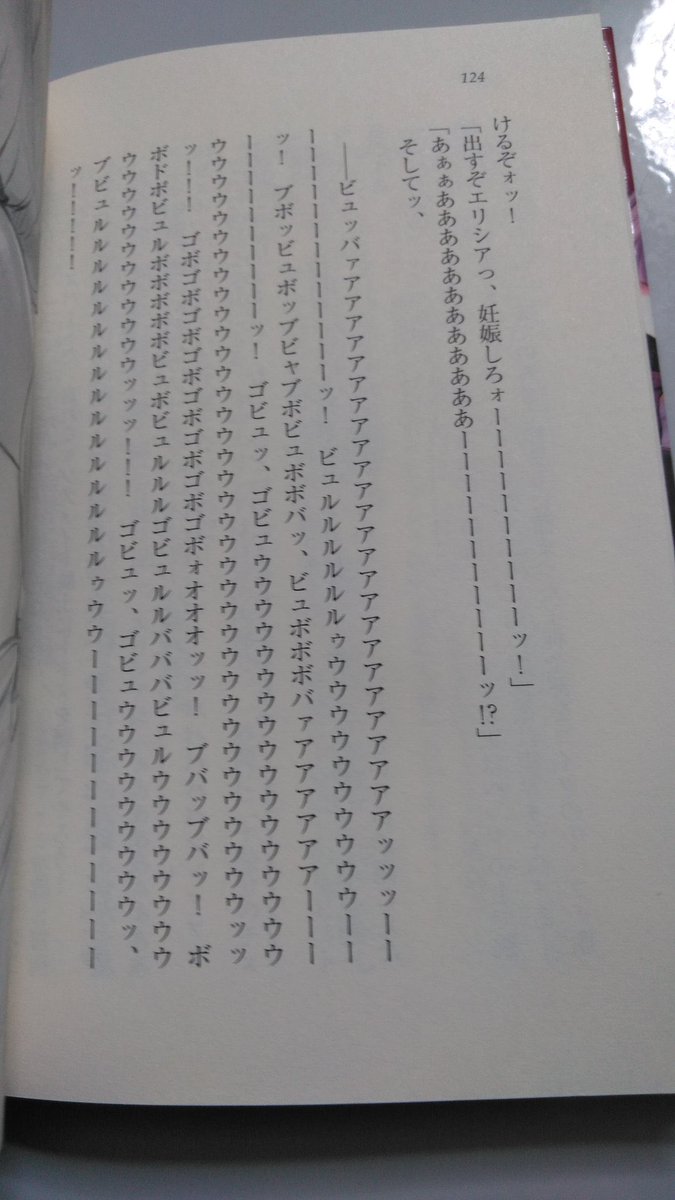 124
けるぞォッ!
「出すぞエリシアっ、妊娠しろォーーーーーーーーーッ!」
「あぁぁああああああああああーーーーーーーーーーッ!?」
そしてッ、
――ビュッバァアアアアアアアアアアアアアアアアアアアアアアアアアッッッーー
ーーーーーーーーーーーッ! ビュルルルルルルゥウウウウウウウウウウウーー
ッ! ブボッビュボップビャブボビュボボバッ、ビュボボボバァアアアアアアーーー
ーーーーーーーーーッ! ゴビュッ、ゴビュウウウウウウウウウウウウウウウウウ
ウウウウウウウウウウウウウウウウウウウウウウウウウウウウウウウウウウウウッッ
ッ!!! ゴボゴボゴボゴボゴボゴボゴボォオオオッッ! ブバップバッ! ボ
ボドボビュルボボボボビュボビュルルルゴビュルルバババビュルウウウウウウウウ
ウウウウウウウウウウッッッ!!! ゴビュッ、ゴビュウウウウウウウウウウウッ、
ブビュルルルルルルルルルルルルルルルルルゥウウーーーーーーーーーーーーー
ッ!!!!!